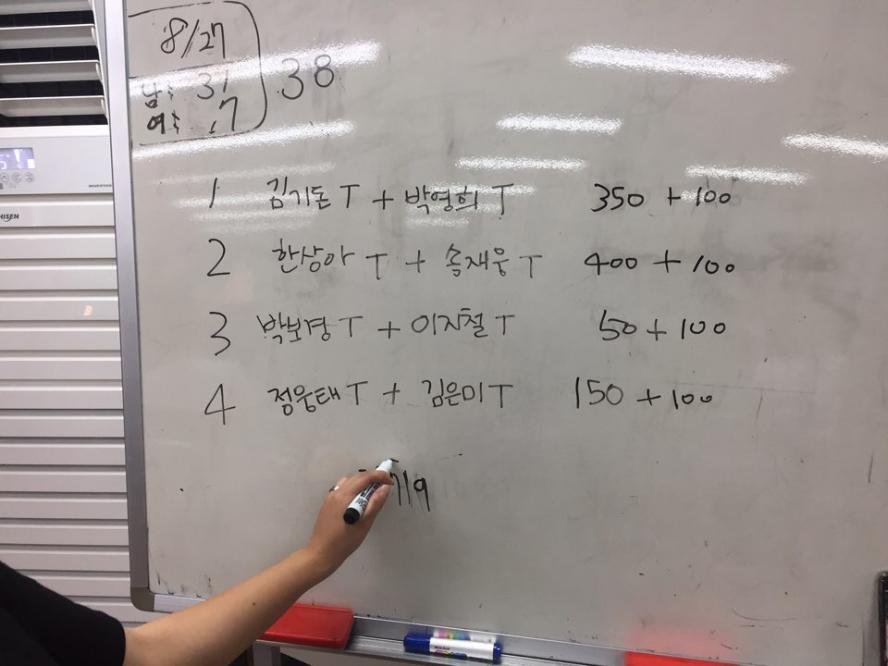 8/27
남: 31 38
여: 7
1 김기돈 T + 박영희 T 350 + 100
2 한상아 T + 송재웅 T 400 + 100
3 박보경 T + 이지철 T 50 + 100
4 정웅태 T + 김은미 T 150 + 100
719